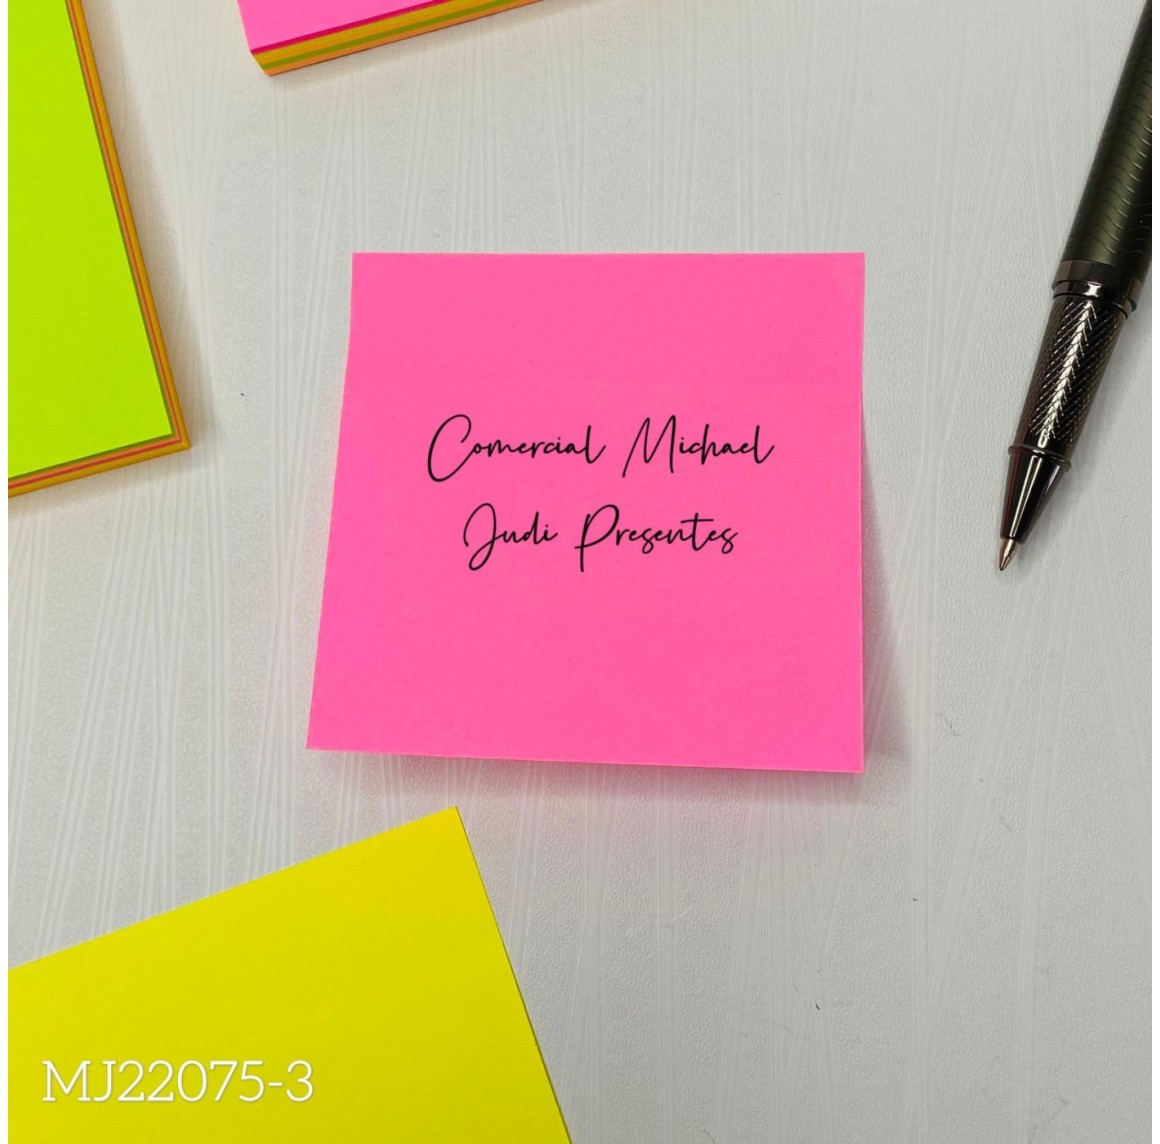 Comercial Michael
Judi Presentes
MJ22075-3